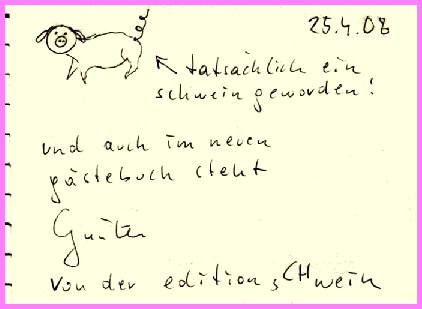 25.4.08
tatsächlich ein
schwein geworden!
und auch im neuen
gästebuch steht
Günter
von der edition sCHwein